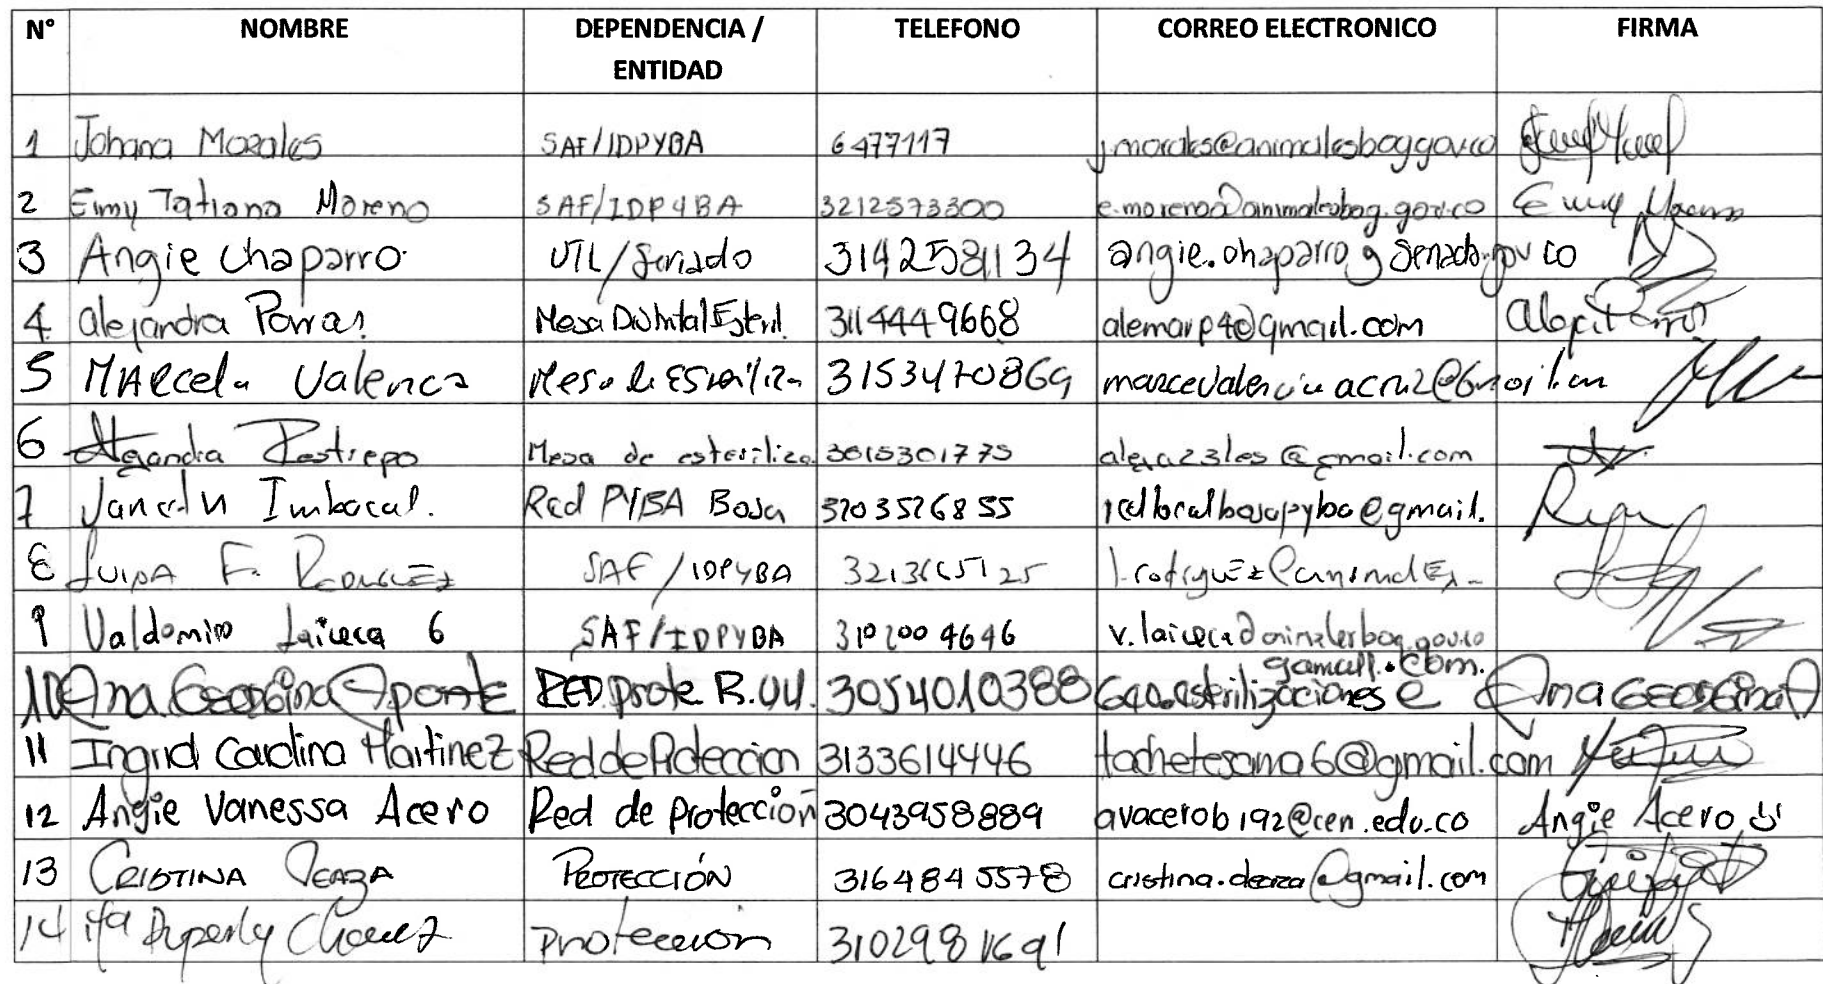 N° NOMBRE DEPENDENCIA / ENTIDAD TELEFONO CORREO ELECTRONICO FIRMA
1 Johana Morales SAF/IDPYBA 6477117 j.morales@animalesbog.gov.co
2 Eimy Tatiana Moreno SAF/IDPYBA 3212573300 e.moreno@animalesbog.gov.co Eimy Moreno
3 Angie Chaparro UTL/Senado 3142581134 angie.chaparro@senado.gov.co
4 alejandra Porras. Mesa Distrital Esteril. 3114449668 alemarp4@gmail.com
5 MARcela Valencia Mesa de Esteriliza 3153470869 marcevalenciaacruz@Gmail.com
6 Alejandra Restrepo Mesa de esteriliza 3015301775 aleja23les@gmail.com
7 Imbacal. Red PYBA Bosa 3203526855 redlocalbosapyba@gmail.
8 Luisa F. Rodríguez SAF/IDPYBA l.rodriguez@animales-
9 Valdomiro 6 SAF/IDPYBA 3102004646
10 Ana Georgina Aponte RED prote R.UU. 3054010388 640.esterilizaciones@ gamail.com. Ana Georgina A
11 Ingrid Carolina Martinez Red de Proteccion 3133614446 tachetesana6@gmail.com
12 Angie Vanessa Acero Red de Protección 3043958889 avacerob192@cen.edu.co Angie Acero
13 CRISTINA DEAZA PROTECCIÓN 3164845578 cristina.deaza@gmail.com
14 Chavez Protección 3102981691